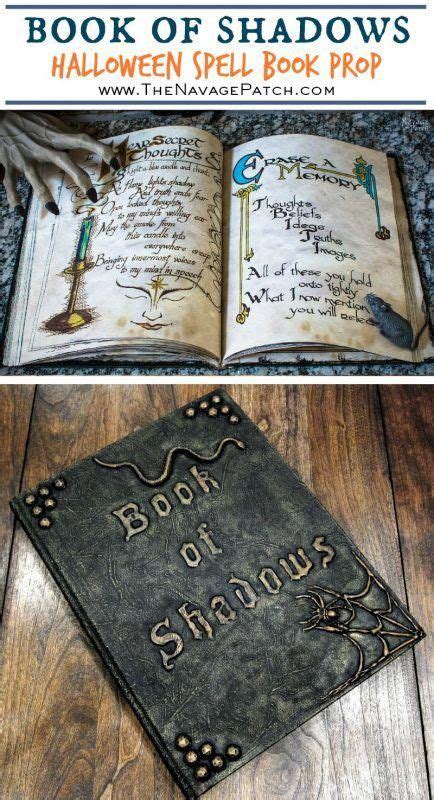 BOOK OF SHADOWS
HALLOWEEN SPELL BOOK PROP
WWW.THENAVAGEPATCH.COM
Hear Secret
Thoughts
Light a blue candle and chant:
As flame lights shadow
And truth ends fear
Thoughts
to my mind's willing ear
May the smoke from
this candle into
everywhere creep
Bringing innermost voices
to my mind in speech
Erase a
Memory
Thoughts
Beliefs
Ideas
Truths
Images
All of these you hold
onto tightly
What I now mention
you will release
Book
of
Shadows